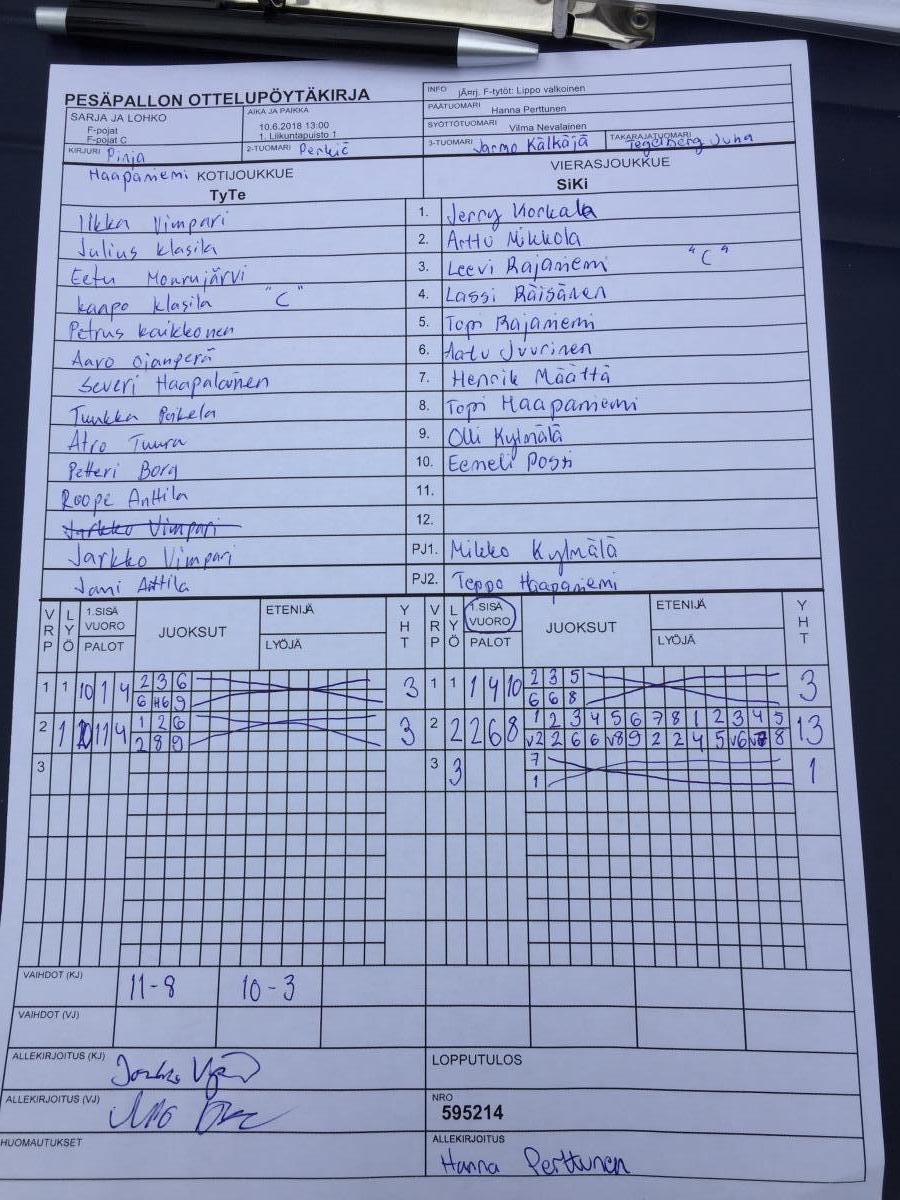 PESÄPALLON OTTELUPÖYTÄKIRJA
SARJA JA LOHKO
F-pojat
F-pojat C
AIKA JA PAIKKA
10.6.2018 13:00
1. Liikuntapuisto 1
INFO jÄ¤rj. F-tytöt: Lippo valkoinen
PÄÄTUOMARI Hanna Perttunen
SYÖTTÖTUOMARI Vilma Nevalainen
KIRJURI Pinja Haapaniemi
2-TUOMARI
3-TUOMARI Jarmo Kälkäjä
TAKARAJATUOMARI Tegelberg Juha
KOTIJOUKKUE
TyTe
VIERASJOUKKUE
SiKi
Ilkka Vimpari 1. Jerry Korkala
Julius Klasila 2. Arttu Mikkola
Eetu Mourujärvi 3. Leevi Rajaniemi "C"
Kaapo Klasila "C" 4. Lassi Räisänen
Petrus Kaikkonen 5. Topi Rajaniemi
Aaro Ojanperä 6. Aatu Juurinen
Severi Haapalainen 7. Henrik Määttä
Tuukka Poikela 8. Topi Haapaniemi
Atro Tuura 9. Olli Kylmälä
Petteri Borg 10. Eemeli Posti
Roope Anttila 11.
Jarkko Vimpari 12.
Jarkko Vimpari PJ1. Mikko Kylmälä
Jani Anttila PJ2. Teppo Haapaniemi
VRP LYÖ 1.SISÄ VUORO PALOT JUOKSUT ETENIJÄ LYÖJÄ YHT
VRP LYÖ 1.SISÄ VUORO PALOT JUOKSUT ETENIJÄ LYÖJÄ YHT
1 1 10 1 4 2 3 6 3 1 1 1 4 10 2 3 5 3
6 H6 9 6 6 8
2 1 11 4 1 2 6 3 2 2 2 6 8 1 2 3 4 5 6 7 8 1 2 3 4 5 13
2 8 9 v2 2 6 6 v8 9 2 2 4 5 v6 8
3 3 3 7 1
1
VAIHDOT (KJ) 11-8 10-3
VAIHDOT (VJ)
ALLEKIRJOITUS (KJ)
LOPPUTULOS
ALLEKIRJOITUS (VJ)
NRO
595214
HUOMAUTUKSET
ALLEKIRJOITUS
Hanna Perttunen